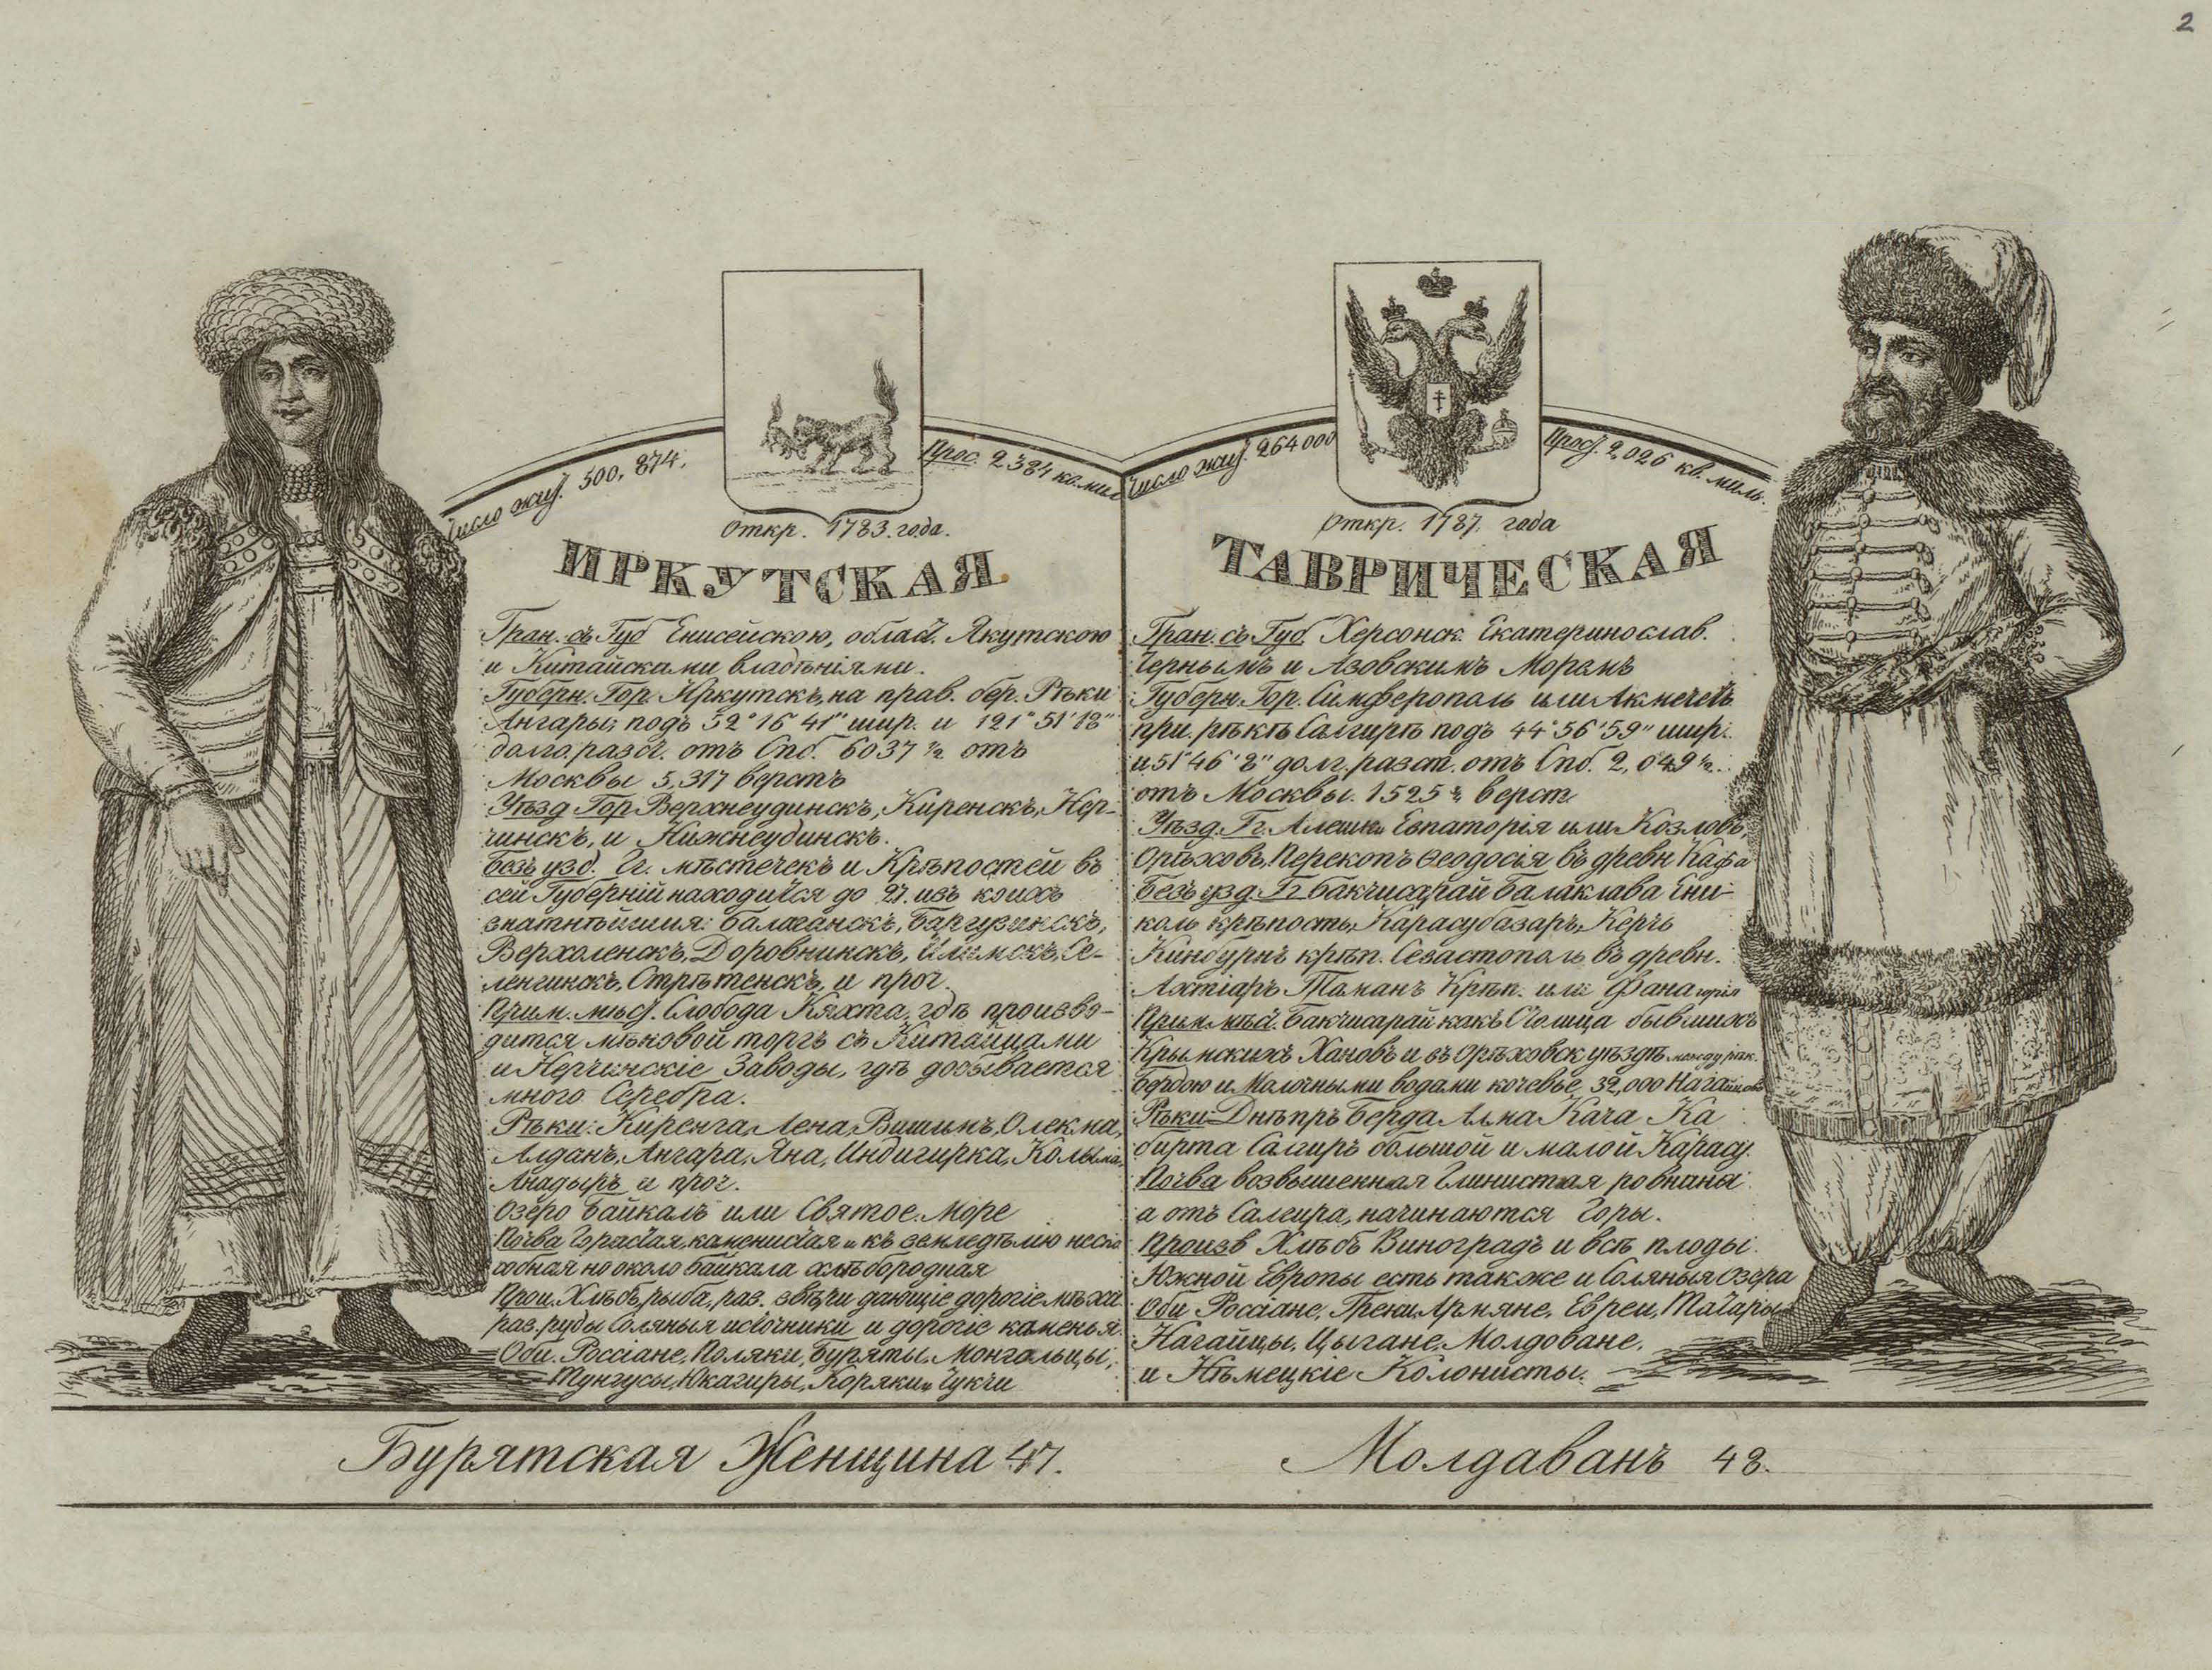 2
Число жит. 500,874.
Прос. 2384 кв. мил
Откр. 1783. года.
ИРКУТСКАЯ
Гран. съ Губ Енисейскою, област. Якутскою
и Китайскими владѣніями.
Губерн. Гор. Иркутскъ, на прав. бер. Рѣки
Ангары; подъ 52° 16' 41" шир. и 121° 51' 18"
долго. разст. отъ Спб. 6037 ½ отъ
Москвы 5,317 верстъ
Уѣзд Гор Верхнеудинскъ, Киренскъ, Нер-
чинскъ, и Нижнеудинскъ.
Безъ узд. Гг. мѣстечекъ и Крѣпостей въ
сей Губерній находится до 27. изъ коихъ
знатнѣйшия: Балаганскъ, Баргузинскъ,
Верхоленскъ, Доровнинскъ, Илимскъ, Се-
ленгинскъ, Стрѣтенскъ, и проч.
Прим. мѣст. Слобода Кяхта, гдѣ произво-
дится мѣновой торгъ съ Китайцами
и Нерчинскіе Заводы, гдѣ добывается
много Серебра.
Рѣки: Киренга, Лена, Витимъ, Олекма,
Алданъ, Ангара, Яна, Индигирка, Колыма,
Анадыръ и проч.
Озеро Байкалъ или Святое Море
Почва Гористая, каменистая и къ земледѣлію неспо
собная но около Байкала хлѣбородная
Прои. Хлѣбъ, рыба, раз. звѣри дающіе дорогіе мѣха
раз. руды Соляныя источники и дорогіе каменья.
Оби. Россіане, Поляки, Буряты, Монгольцы,
Тунгусы, Юкагиры, Коряки и Чукчи
Бурятская Женщина 47.
Число жит. 264000
Прост. 2,026 кв. миль.
Откр. 1787. года
ТАВРИЧЕСКАЯ
Гран. съ Губ. Херсонск. Екатеринослав.
Чернымъ и Азовскимъ Моремъ
Губерн. Гор. Симферополь или Акмечеть
при рѣкѣ Салгирѣ подъ 44° 56' 59" шир.
и 51° 46' 8" долг. разст. отъ Спб. 2,049 ½.
отъ Москвы. 1525 верст.
Уѣзд. Гг. Алешки Евпаторія или Козловъ,
Орѣховъ, Перекопъ Ѳеодосія въ древн Кафа
Безъ узд. Гг. Бакчисарай Балаклава Ени-
коль крѣпость, Карасубазаръ, Керчь
Кинбурнъ крѣп. Севастополь въ древн.
Ахтіаръ Таманъ Крѣп. или Фанагорія
Прим. мѣст. Бакчисарай какъ Столица бывшихъ
Крымскихъ Хановъ и въ Орѣховск уѣздѣ между рѣк.
Бердою и Молочными водами кочевье 32,000 Нагайцовъ
Рѣки: Днѣпръ Берда Алма Кача Ка
бирта Салгиръ большой и малой Карасу.
Почва возвышенная Глинистая ровнина
а отъ Салгира, начинаются Горы.
Произв Хлѣбъ Виноградъ и всѣ плоды
Южной Европы есть также и Соляныя Озера
Оби Россіане, Греки, Армяне, Евреи, Татары
Нагайцы, Цыгане, Молдоване,
и Нѣмецкіе Колонисты.
Молдаванъ 48.